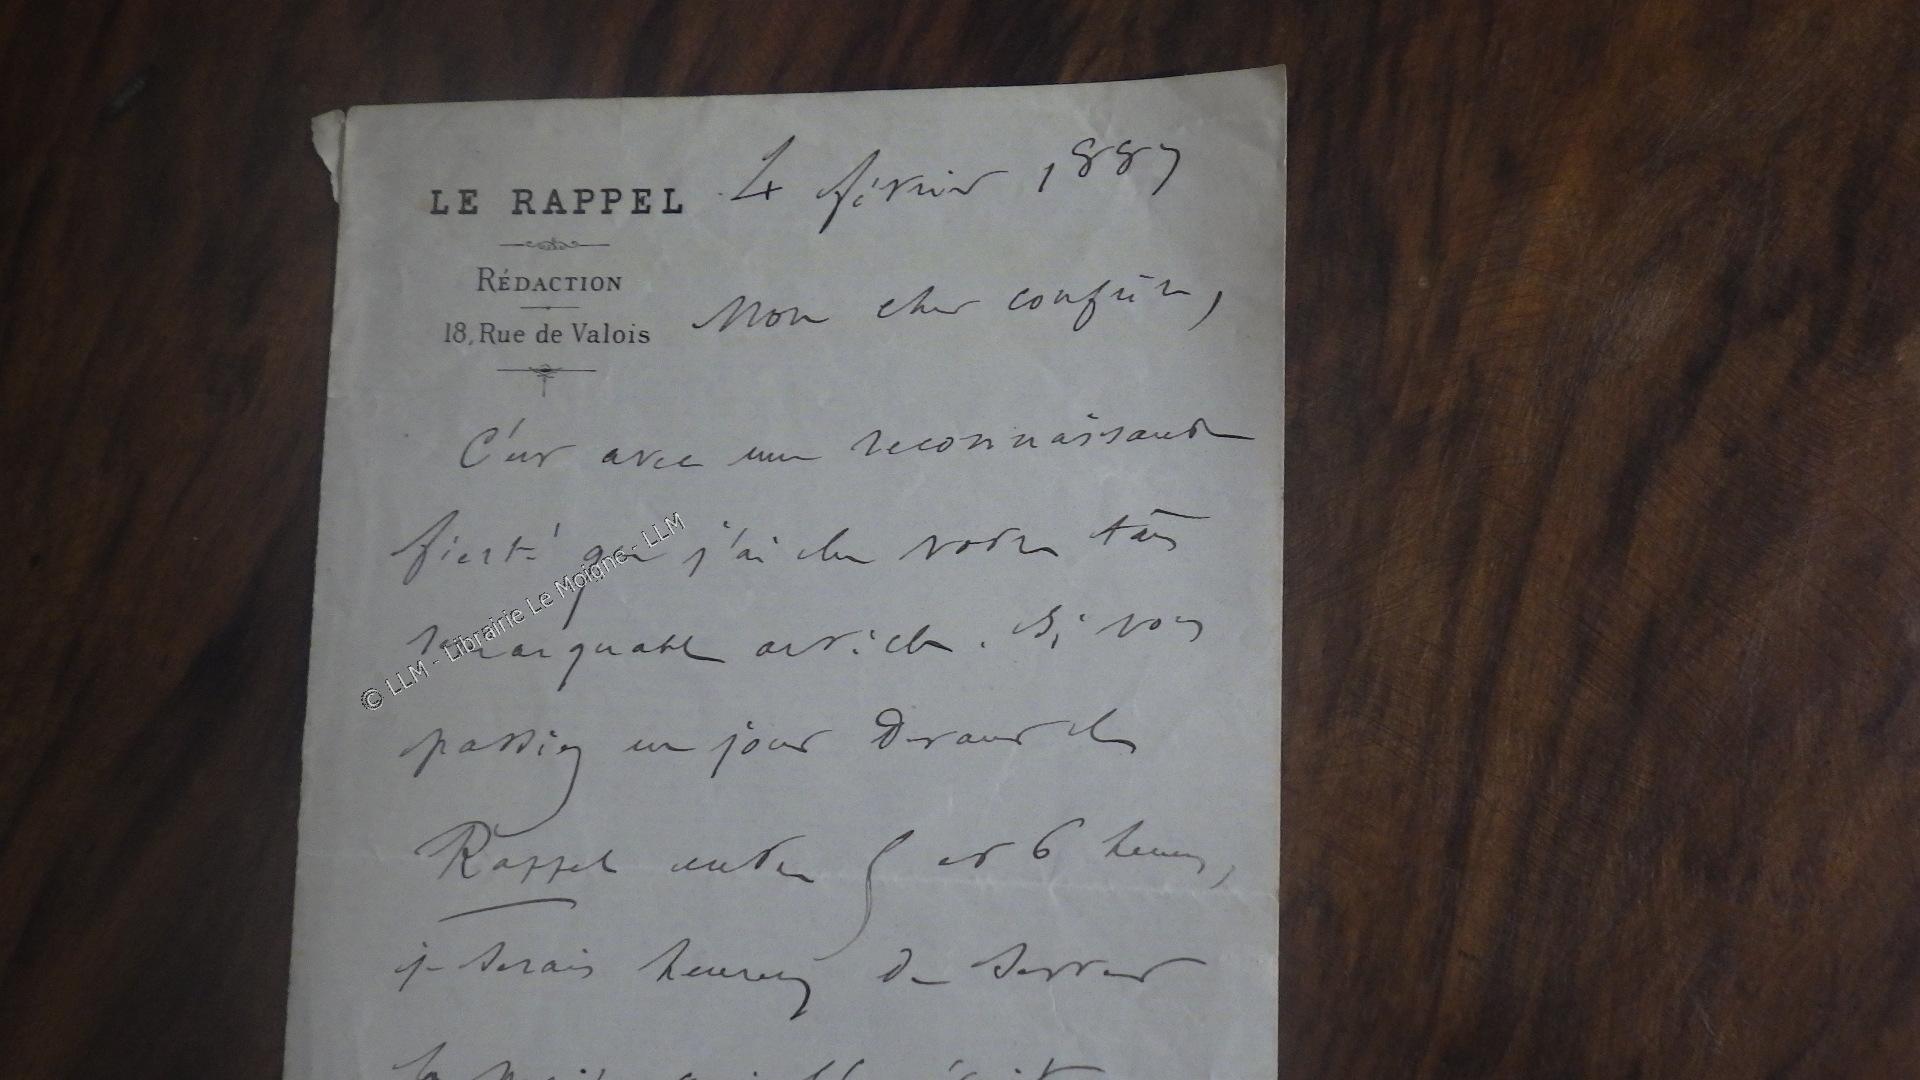 LE RAPPEL
4 février 1887
RÉDACTION
18, Rue de Valois
Mon cher confrère,
C'est avec une reconnaissante
fierté que j'ai lu votre très
remarquable article. Si vous
passiez un jour devant le
Rappel entre 5 et 6 heures,
je serais heureux de serrer
la main qui l'a écrit
© LLM - Librairie Le Moigne - LLM